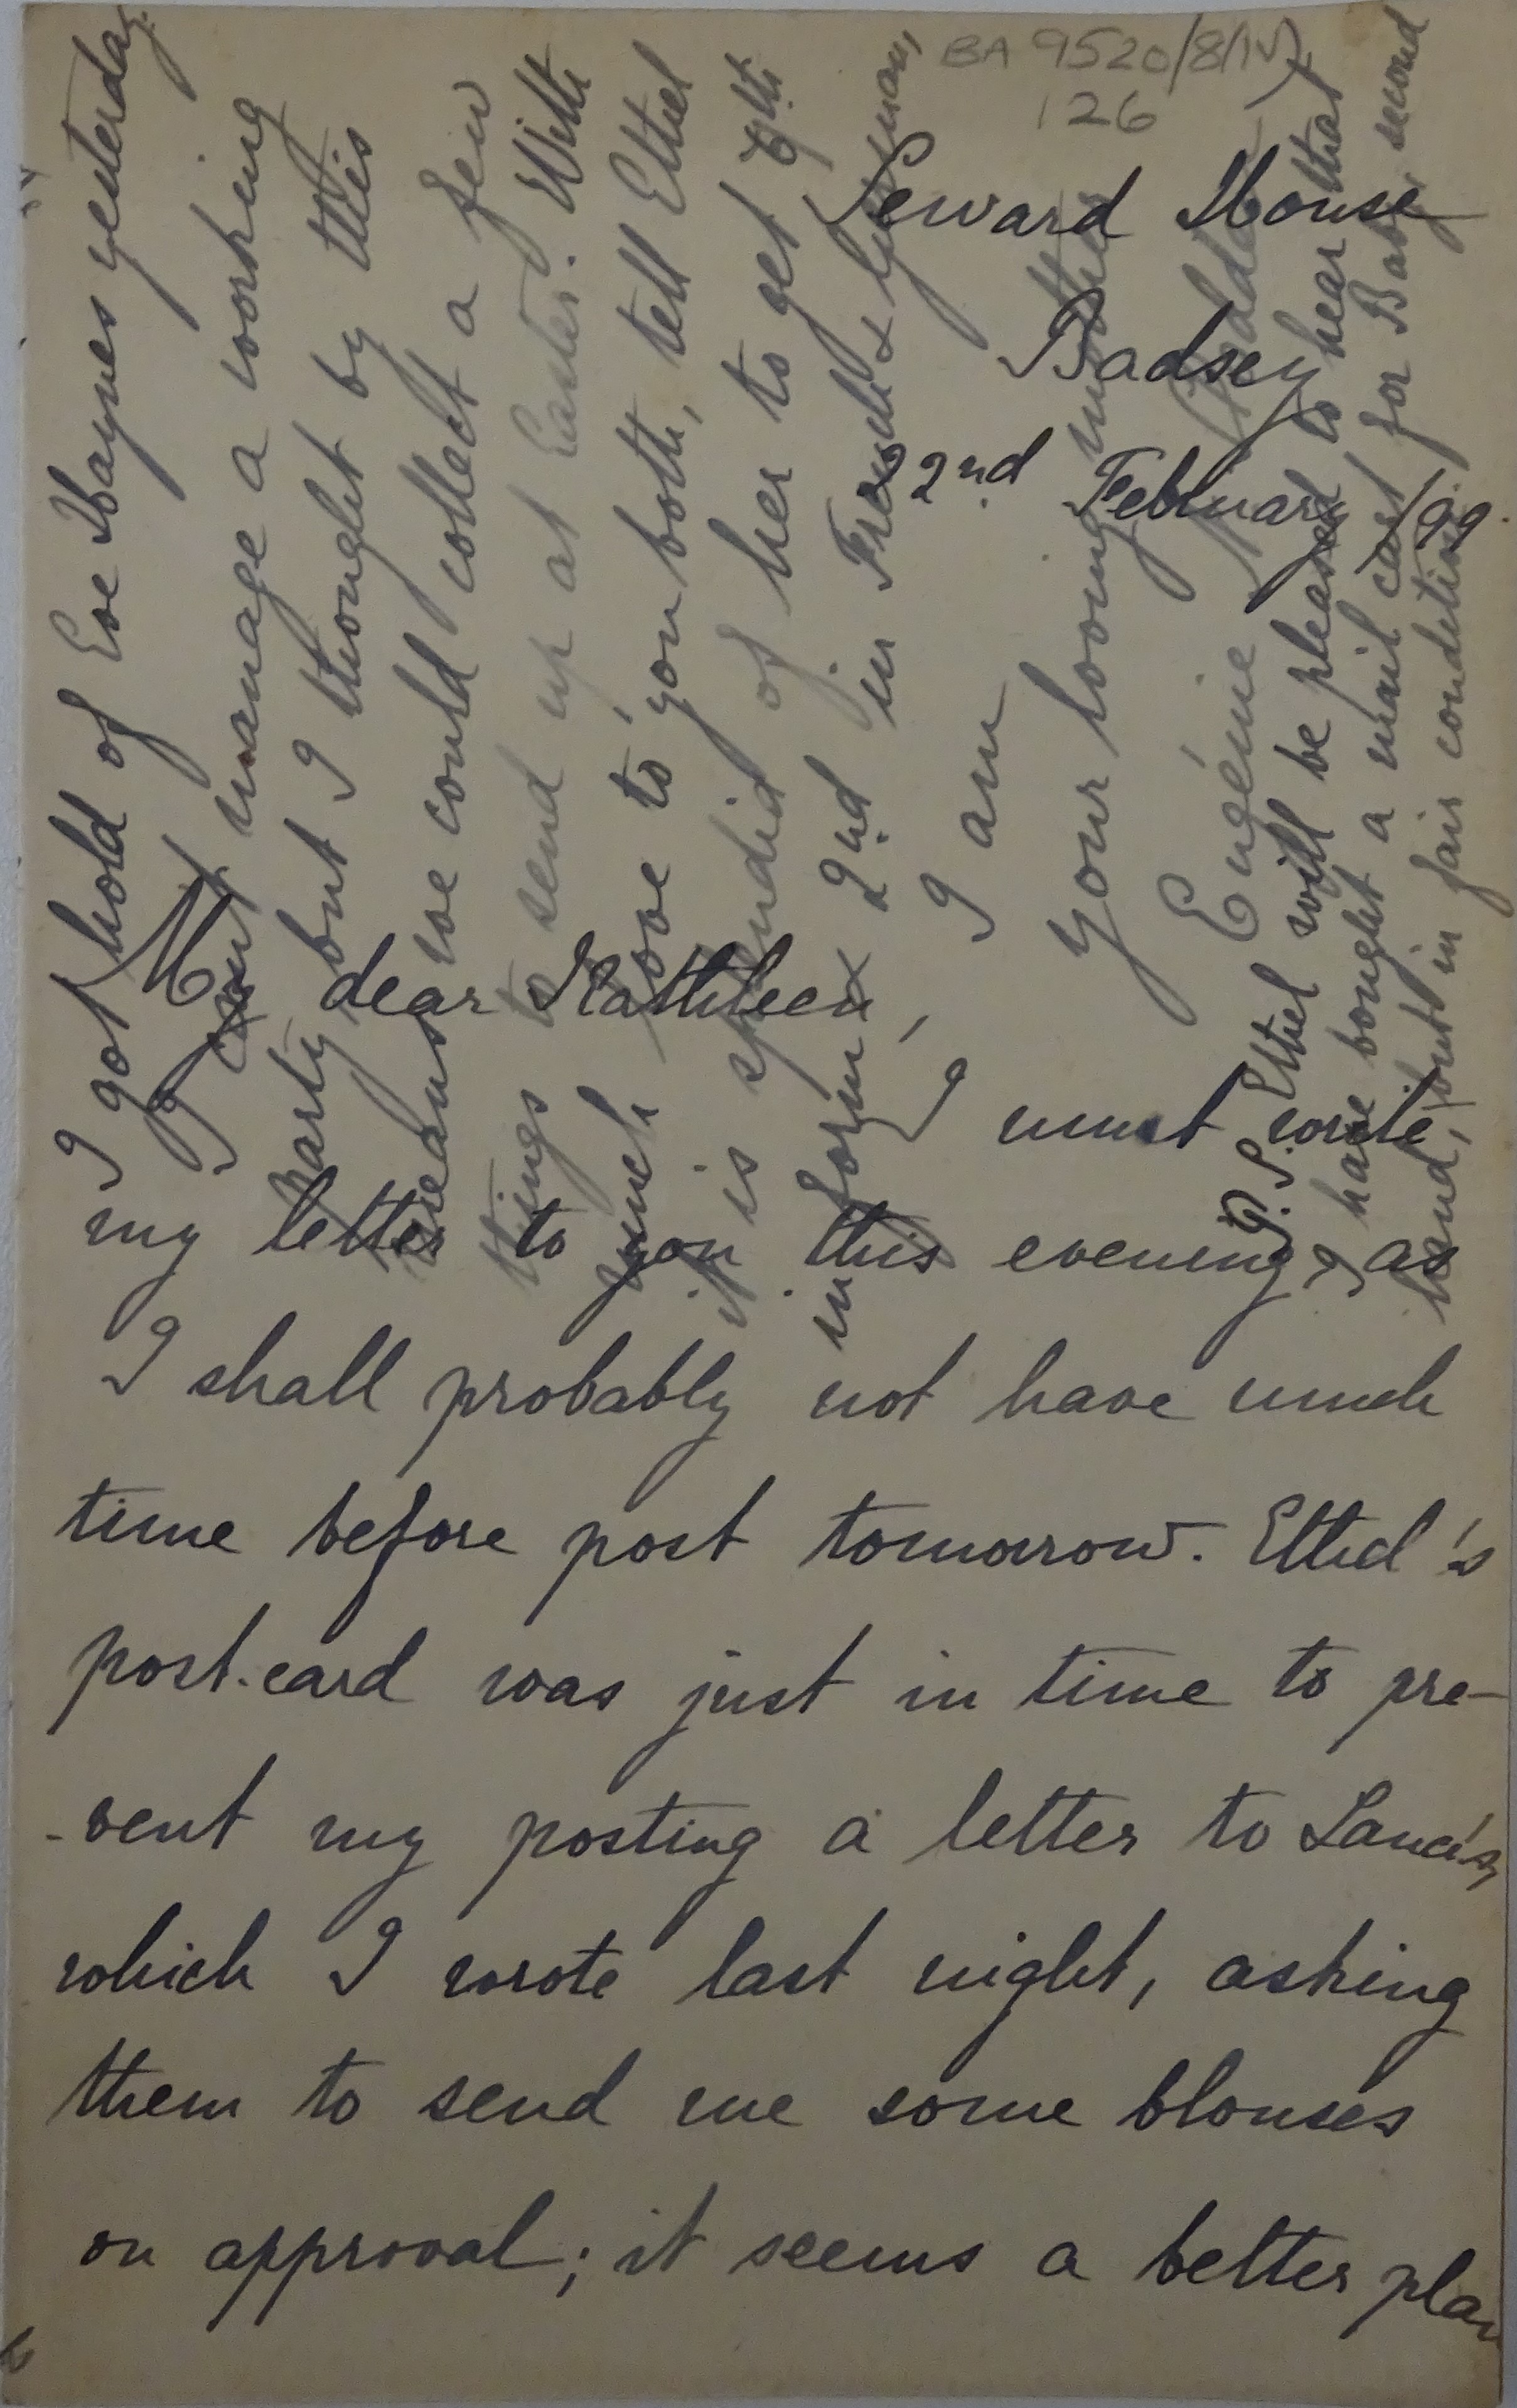 BA 9520/8/iv)
126
Seward House
Badsey
22nd February /99.
My dear Kathleen,
I must write
my letter to you this evening, as
I shall probably not have much
time before post tomorrow. Ethel's
post-card was just in time to pre-
-vent my posting a letter to Lance's,
which I wrote last night, asking
them to send me some blouses
on approval; it seems a better plan
I got hold of Eve Haynes yesterday.
I can't manage a working
party but I thought by this
means we could collect a few
things to send up at Easter. With
much love to you both, tell Ethel
it is splendid of her to get 7th
in form & 2nd in French & German,
I am
your loving mother
Eugénie
P.S. Ethel will be pleased to hear that
I have bought a mail cart for Baby, second
hand, but in fair condition.